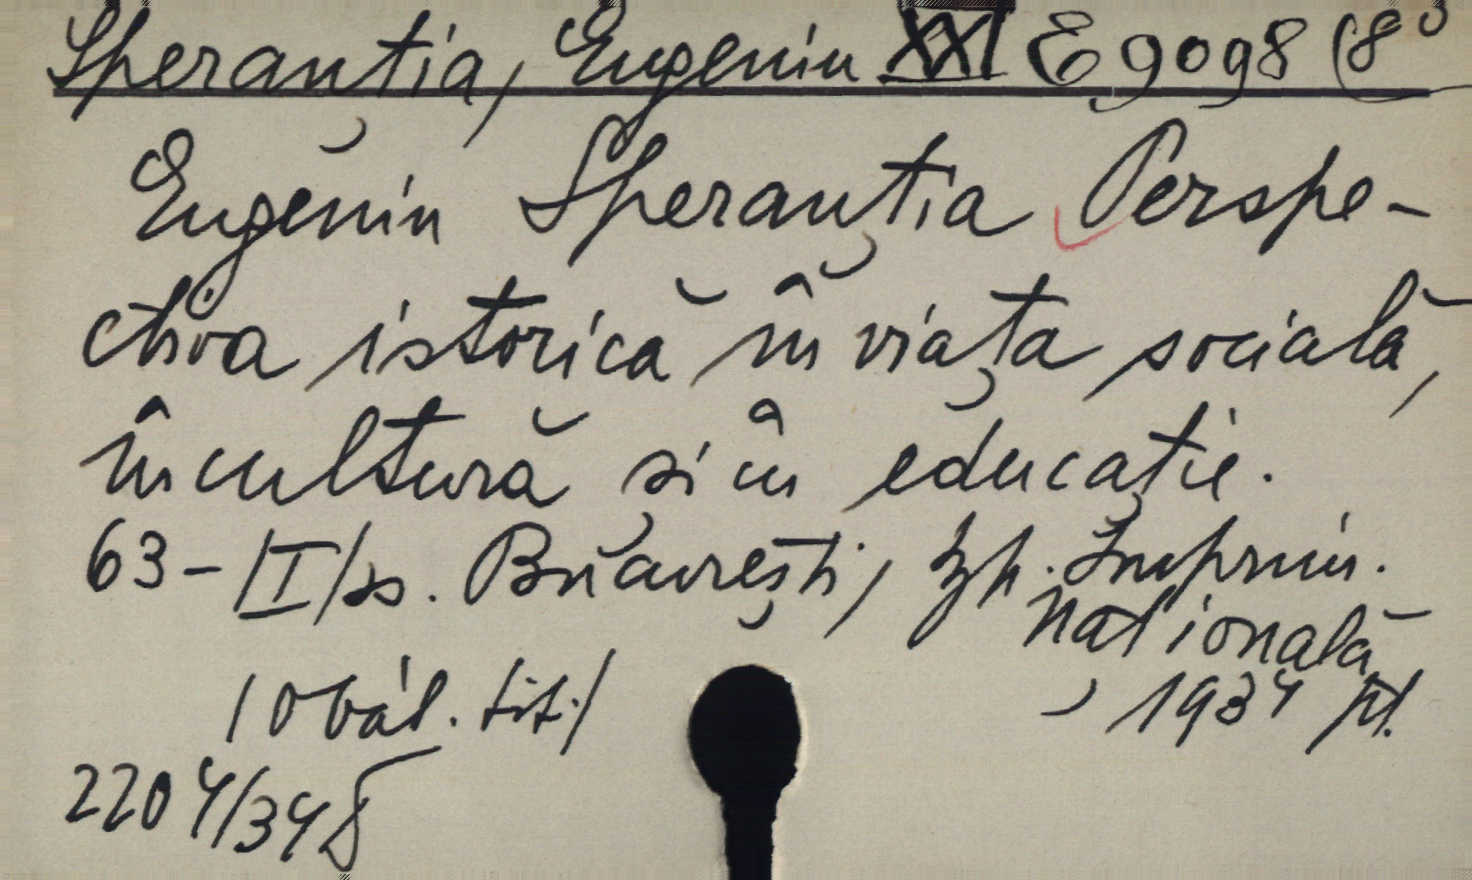 Sperantia, Eugeniu XXI E 9098 (8°
Eugeniu Speranția Perspe-
ctiva istorică în viața socială,
în cultură și în educație.
63-III/ss. București, Imprim.
națională,
/Obál. tit./ 1934 st.
2204/348